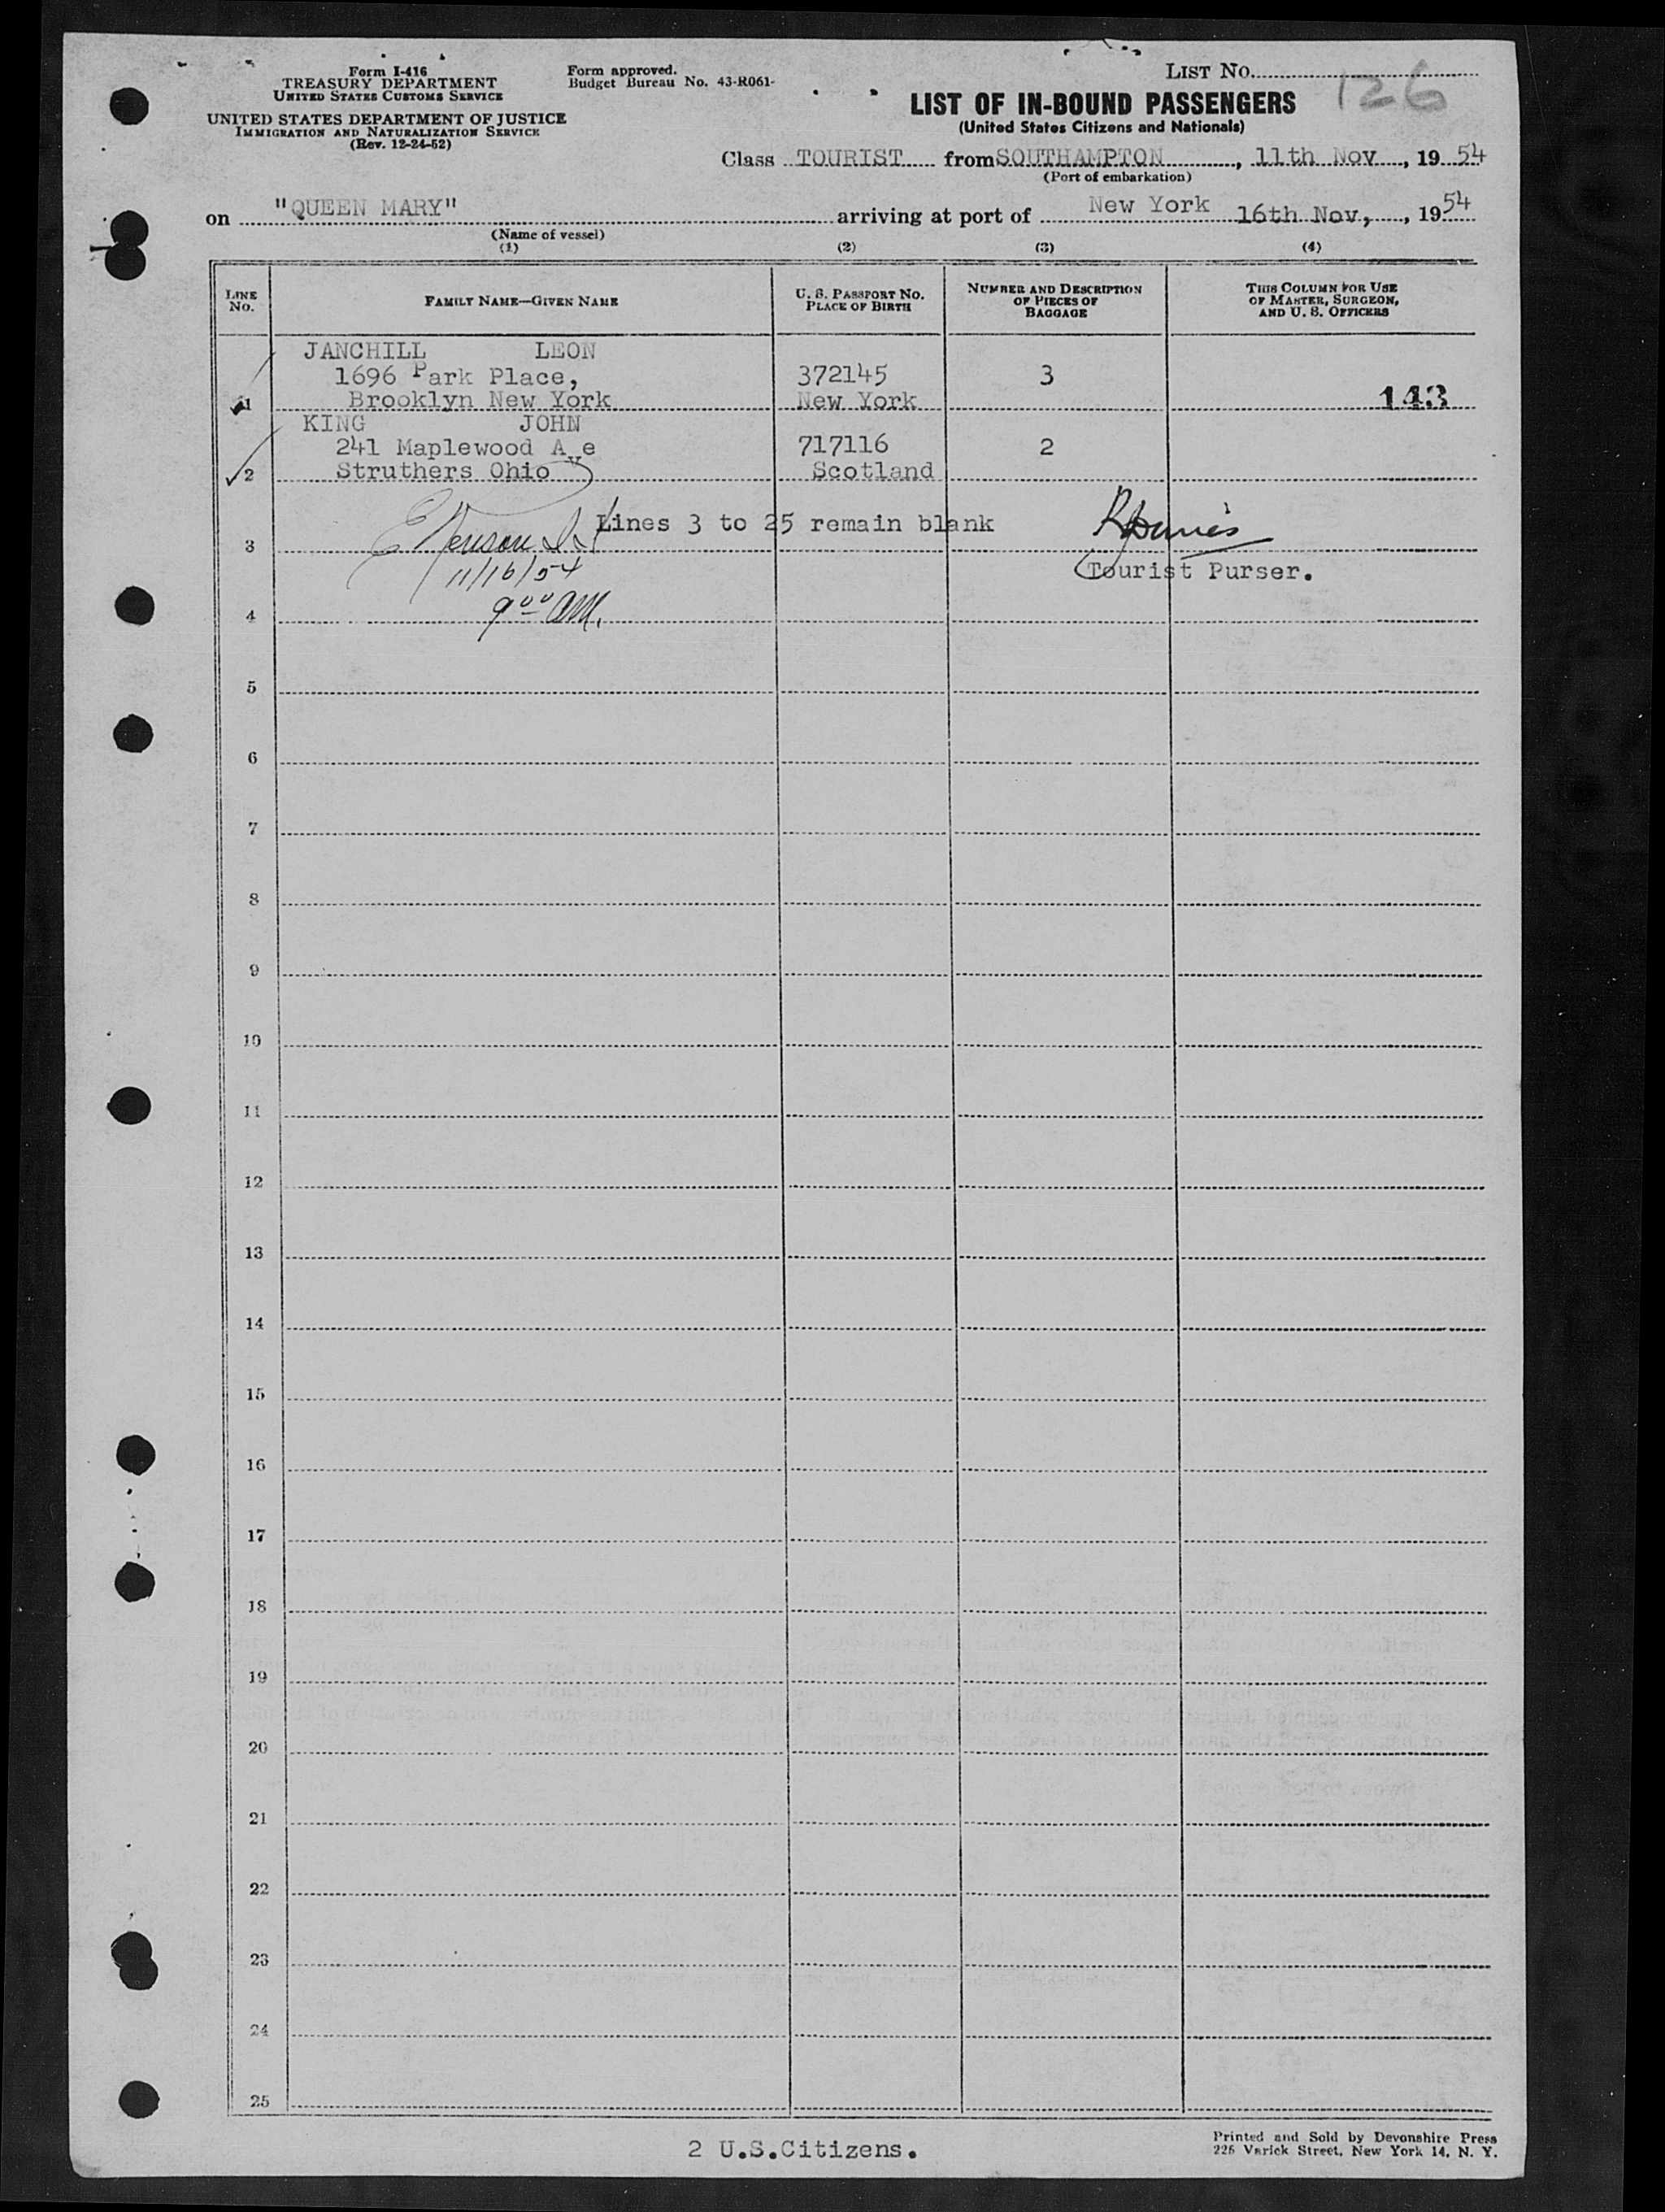 Form I-416
TREASURY DEPARTMENT
UNITED STATES CUSTOMS SERVICE
UNITED STATES DEPARTMENT OF JUSTICE
IMMIGRATION AND NATURALIZATION SERVICE
(Rev. 12-24-52)
Form approved.
Budget Bureau No. 43-R061-
LIST NO. 126
LIST OF IN-BOUND PASSENGERS
(United States Citizens and Nationals)
Class TOURIST from SOUTHAMPTON, 11th Nov, 19 54
(Port of embarkation)
on "QUEEN MARY" arriving at port of New York 16th Nov, , 19 54
(Name of vessel)
(1) (2) (3) (4)
LINE NO. FAMILY NAME—GIVEN NAME U. S. PASSPORT NO. PLACE OF BIRTH NUMBER AND DESCRIPTION OF PIECES OF BAGGAGE THIS COLUMN FOR USE OF MASTER, SURGEON, AND U. S. OFFICERS
JANCHILL LEON
1696 Park Place, 372145 3
1 Brooklyn New York New York 143
KING JOHN
241 Maplewood Ave 717116 2
2 Struthers Ohio Scotland
Lines 3 to 25 remain blank
3
11/16/54 Tourist Purser.
9 00 AM.
4
5
6
7
8
9
10
11
12
13
14
15
16
17
18
19
20
21
22
23
24
25
2 U.S.Citizens.
Printed and Sold by Devonshire Press
226 Varick Street, New York 14, N. Y.